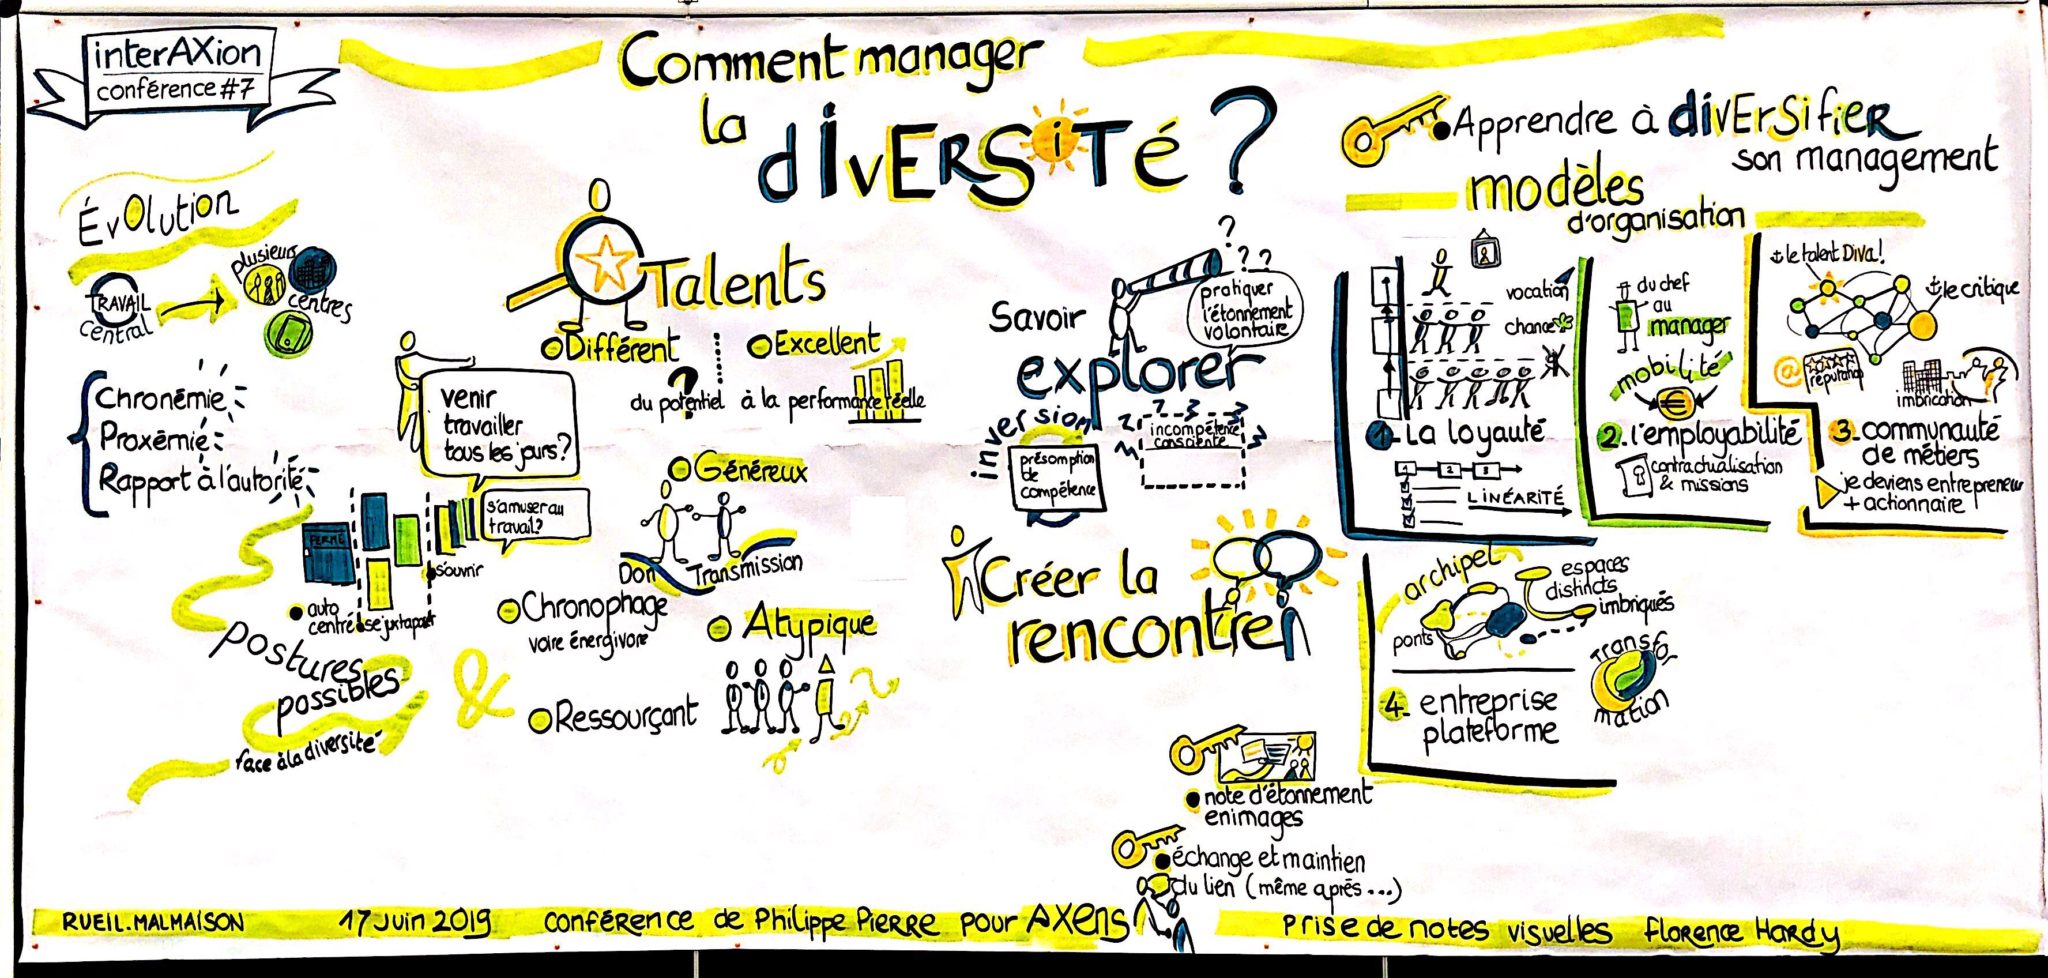 interAXion
conférence #7
Comment manager
la diVERSiTé ?
Évolution
TRAVAIL
central
plusieurs
centres
Chronémie
Proxémie
Rapport à l'autorité
venir
travailler
tous les jours?
s'amuser au
travail?
FERMÉ
auto
centré
se juxtaposer
s'ouvrir
postures
possibles
face à la diversité
&
Talents
Différent
Excellent
?
du potentiel à la performance réelle
Généreux
Don
Transmission
Chronophage
voire énergivore
Atypique
Ressourçant
Savoir
explorer
? ? ? ?
pratiquer
l'étonnement
volontaire
inversion
présomption
de
compétence
incompétence
consciente
Créer la
rencontre
note d'étonnement
en images
échange et maintien
du lien (même après...)
Apprendre à diVERSifiER
son management
modèles
d'organisation
vocation
chance
1. La loyauté
1 2 3
LINÉARITÉ
du chef
au
manager
mobilité
€
2. l'employabilité
contractualisation
& missions
le talent Diva!
le critique
@
imbrication
3. communauté
de métiers
je deviens entrepreneur
+ actionnaire
archipel
espaces
distincts
imbriqués
ponts
4. entreprise
plateforme
TRANSFOR
mation
RUEIL.MALMAISON 17 Juin 2019 conférence de Philippe PIERRE pour AXens Prise de notes visuelles Florence Hardy